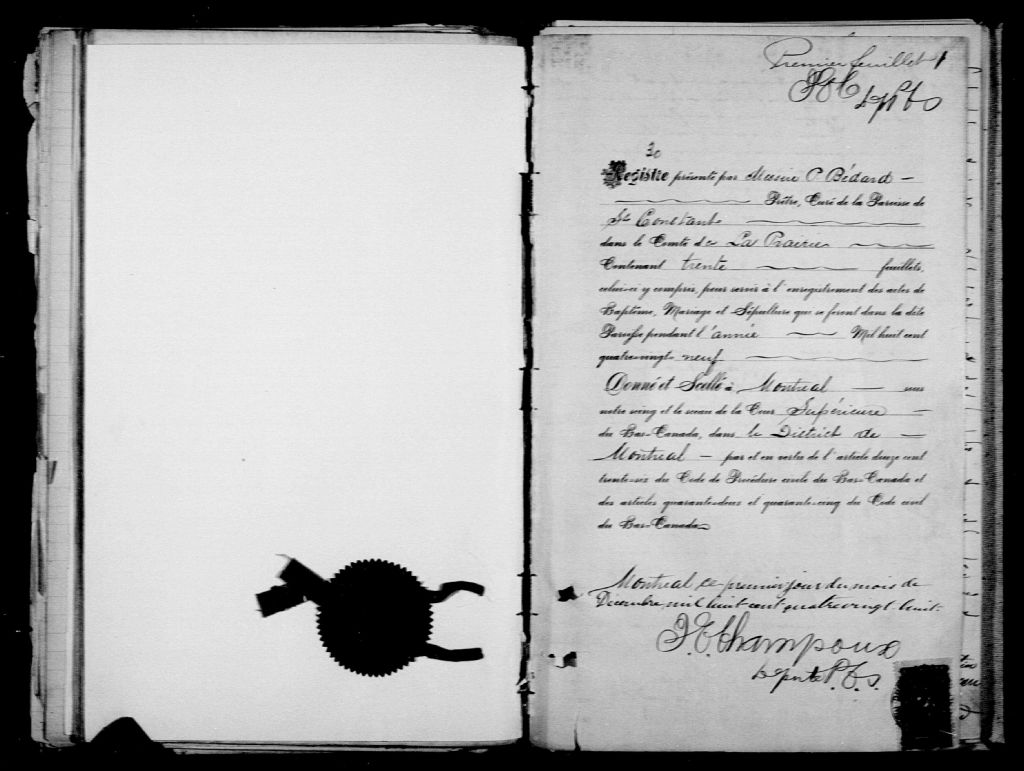 Premier feuillet 1
30
Registre présenté par Messire P Bédard
Prêtre, Curé de la Paroisse de
St Constant
dans le Comté de La Prairie
Contenant trente feuillets,
celui-ci y compris, pour servir à l'enregistrement des actes de
Baptême, Mariage et Sépulture que se feront dans la dite
Paroisse pendant l'année Mil huit cent
quatre-vingt-neuf
Donné et Scellé à Montreal sous
notre seing et le sceau de la Cour Supérieure
du Bas-Canada, dans le District de
Montreal par et en vertu de l'article douze cent
trente-six du Code de Procédure civile du Bas-Canada et
des articles quarante-deux et quarante-cinq du Code civil
du Bas-Canada
Montreal ce premier jour du mois de
Décembre mil huit cent quatre vingt huit
J. E. Champoux
Députe P. C. S.